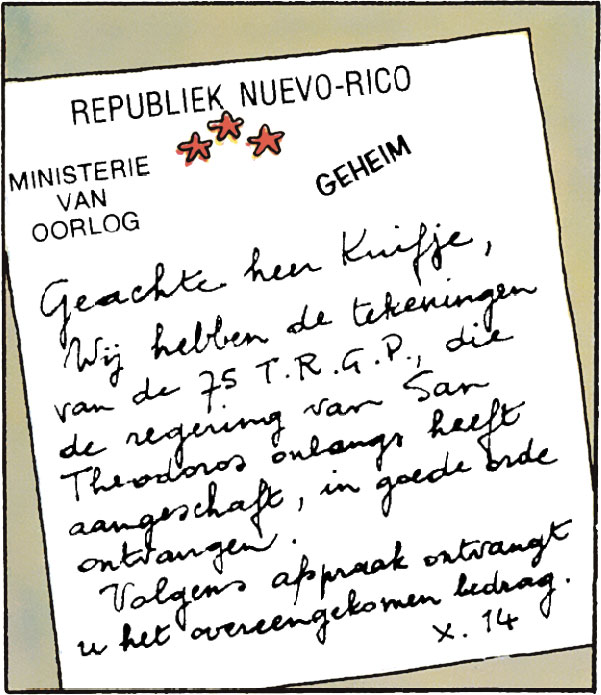 REPUBLIEK NUEVO-RICO
MINISTERIE
VAN
OORLOG
GEHEIM
Geachte heer Kuifje,
Wij hebben de tekeningen
van de 75 T.R.G.P., die
de regering van San
Theodoros onlangs heeft
aangeschaft, in goede orde
ontvangen.
Volgens afspraak ontvangt
u het overeengekomen bedrag.
X. 14